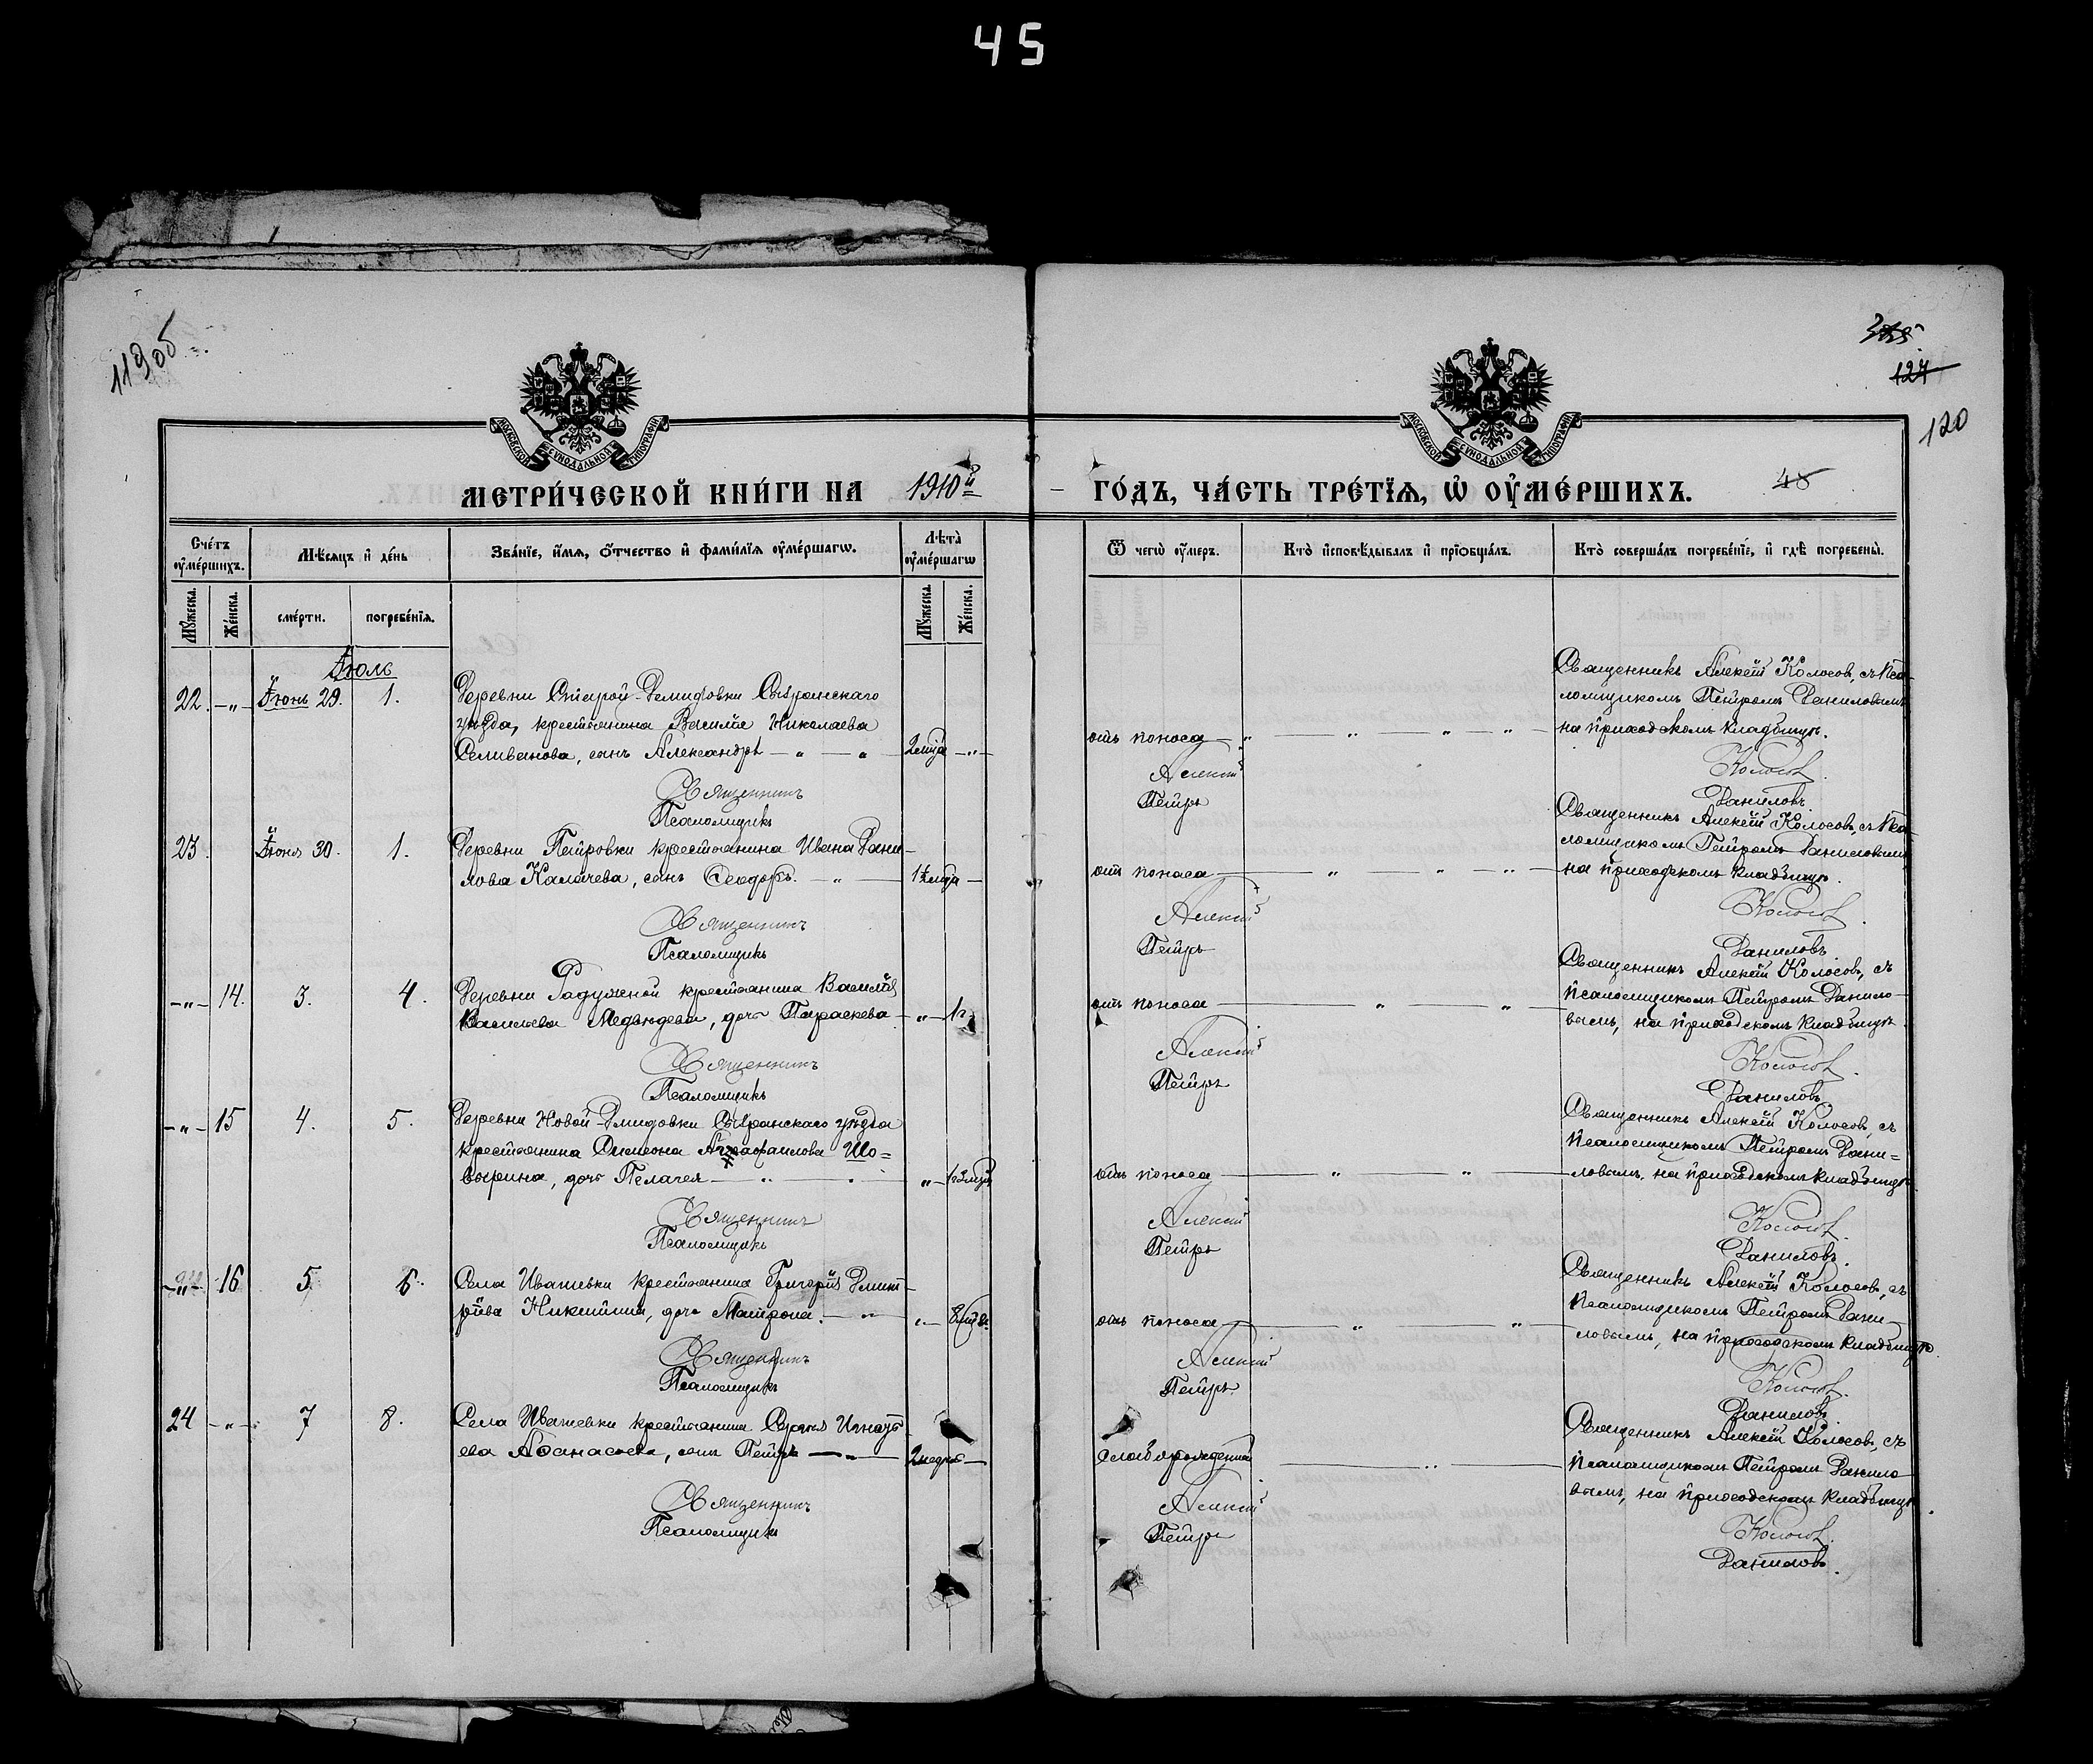 45
119 об
127
120
МОСКОВСКОЙ СѴНОДАЛЬНОЙ ТИПОГРАФІИ
МОСКОВСКОЙ СѴНОДАЛЬНОЙ ТИПОГРАФІИ
МЕТРИ́ЧЕСКОЙ КНИ́ГИ НА 1910й ГО́ДЪ, ЧА́СТЬ ТРЕ́ТЇѦ, Ѡ҆ ОУ҆МЕ́РШИХЪ. 48
Сче́тъ оу҆ме́ршихъ.
Мѣ́сѧцъ и҆ де́нь
Зва́нїе, и҆́мѧ, ѻ҆́тчество и҆ фами́лїѧ оу҆ме́ршагѡ.
Лѣта̀ оу҆ме́ршагѡ
Ѿ чегѡ̀ оу҆́меръ.
Кто̀ и҆сповѣ́дывалъ и҆ прїѡбща́лъ.
Кто̀ соверша́лъ погребе́нїе, и҆ гдѣ̀ погребены̀.
Мꙋ́жеска.
Же́нска.
сме́рти.
погребе́нїѧ.
Мꙋ́жеска.
Же́нска.
Іюль
22. -„- Іюнь 29. 1.
Деревни Старой-Демидовки Сызранскаго
уѣзда, крестьянина Василія Николаева
Селиванова, сынъ Александръ — „ — „ 2 мѣца -„-
отъ поноса — „ — „ — „ — „ —
Священникъ Алексій Колосовъ, съ Пса-
ломщикомъ Петромъ Даниловымъ
на приходскомъ кладбищѣ.
Священникъ Алексій Колосовъ.
Псаломщикъ Петръ Даниловъ.
23. Іюня 30. 1.
Деревни Петровки крестьянина Ивана Дани-
лова Калачева, сынъ Ѳеодоръ. — „ — 1½ мѣца —
отъ поноса — „ — „ — „ —
Священникъ Алексій Колосовъ, съ Пса-
ломщикомъ Петромъ Даниловымъ
на приходскомъ кладбищѣ.
Священникъ Алексій Колосовъ.
Псаломщикъ Петръ Даниловъ.
-„- 14. 3. 4.
Деревни Радужной крестьянина Василія
Васильева Медвѣдева, дочь Параскева -„- 1 г.
отъ поноса — „ — „ —
Священникъ Алексій Колосовъ, съ
псаломщикомъ Петромъ Данило-
вымъ, на приходскомъ кладбищѣ.
Священникъ Алексій Колосовъ.
Псаломщикъ Петръ Даниловъ.
-„- 15 4. 5.
Деревни Новой-Демидовки Сызранскаго уѣзда
крестьянина Симеона Шо=
вырина, дочь Пелагея — „ — . — „ —
отъ поноса — „ — „ —
Священникъ Алексій Колосовъ, съ
псаломщикомъ Петромъ Дани=
ловымъ, на приходскомъ кладбищѣ.
Священникъ Алексій Колосовъ.
Псаломщикъ Петръ Даниловъ.
-„- 16 5 6.
Села Ивашевки крестьянина Григорія Димит-
ріева Никитина, дочь Матрона. — „ — „ —
отъ поноса — „ — „ —
Священникъ Алексій Колосовъ, съ
псаломщикомъ Петромъ Дани-
ловымъ, на приходскомъ кладбищѣ.
Священникъ Алексій Колосовъ.
Псаломщикъ Петръ Даниловъ.
24 -„- 7 8.
Села Ивашевки крестьянина Сергія Игнать-
ева Аѳанасьева, сынъ Петръ — „ — 2 недѣл —
слаборожденный — „ —
Священникъ Алексій Колосовъ, съ
псаломщикомъ Петромъ Данило-
вымъ, на приходскомъ кладбищѣ.
Священникъ Алексій Колосовъ.
Псаломщикъ Петръ Даниловъ.